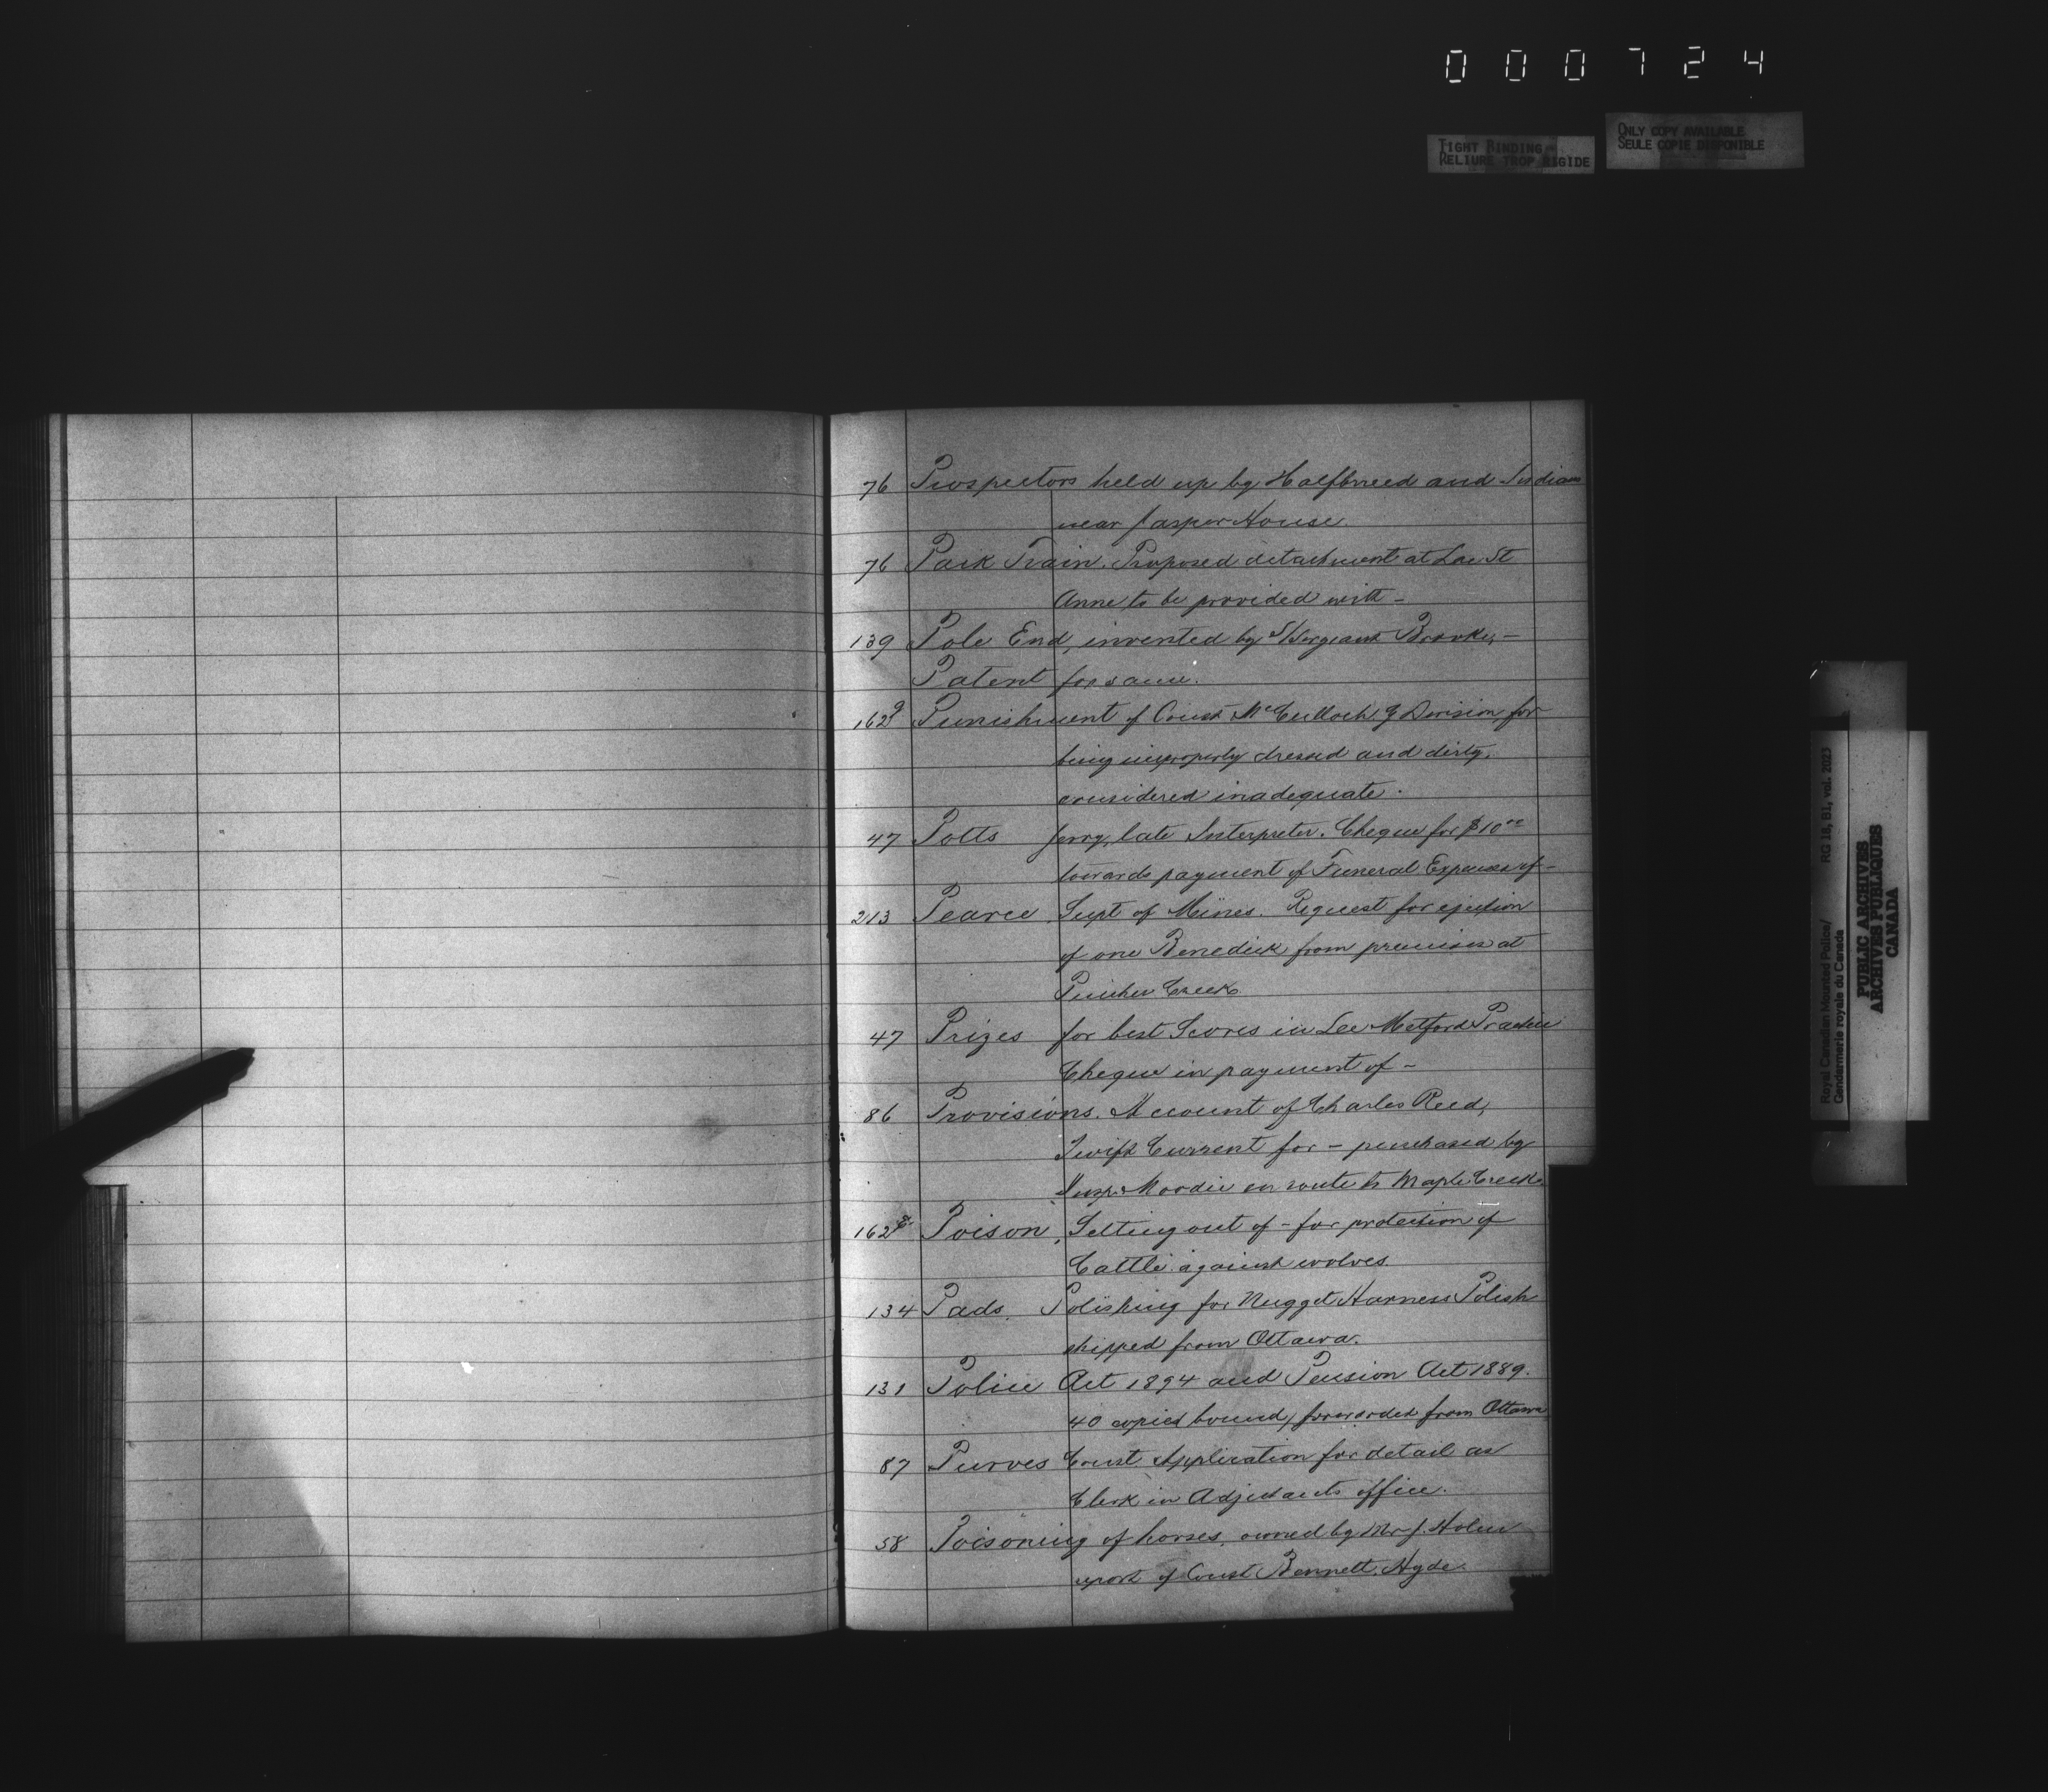 000724
TIGHT BINDING
RELIURE TROP RIGIDE
ONLY COPY AVAILABLE
SEULE COPIE DISPONIBLE
76 Prospectors held up by Halfbreed and Indians
near Jasper House.
76 Pack Train. Proposed detachment at Lac St
Anne to be provided with –
139 Pole End, invented by S/Sergeant Brooke, –
Patent for same.
162 g Punishment of Const McCulloch G Division, for
being improperly dressed and dirty,
considered inadequate.
47 Potts Jerry, late Interpreter. Cheque for $10 00
towards payment of Funeral Expenses of –
213 Pearce Supt of Mines. Request for ejection
of one Benedick from premises at
Pincher Creek.
47 Prizes for best Scores in Lee Metford Practice
Cheque in payment of –
86 Provisions. Account of Charles Reed,
Swift Current for – purchased by
Insp. Moodie en route to Maple Creek.
162 Poison, Setting out of – for protection of
Cattle against wolves.
134 Pads. Polishing for Nugget Harness Polish
shipped from Ottawa.
131 Police Act 1894 and Pension Act 1889.
40 copies bound, forwarded from Ottawa
87 Purves Const. Application for detail as
Clerk in Adjutants office.
58 Poisoning of horses, owned by Mr J.
report of Const Bennett, Hyde.
Royal Canadian Mounted Police/ RG 18, B1, vol. 2023
Gendarmerie royale du Canada
PUBLIC ARCHIVES
ARCHIVES PUBLIQUES
CANADA